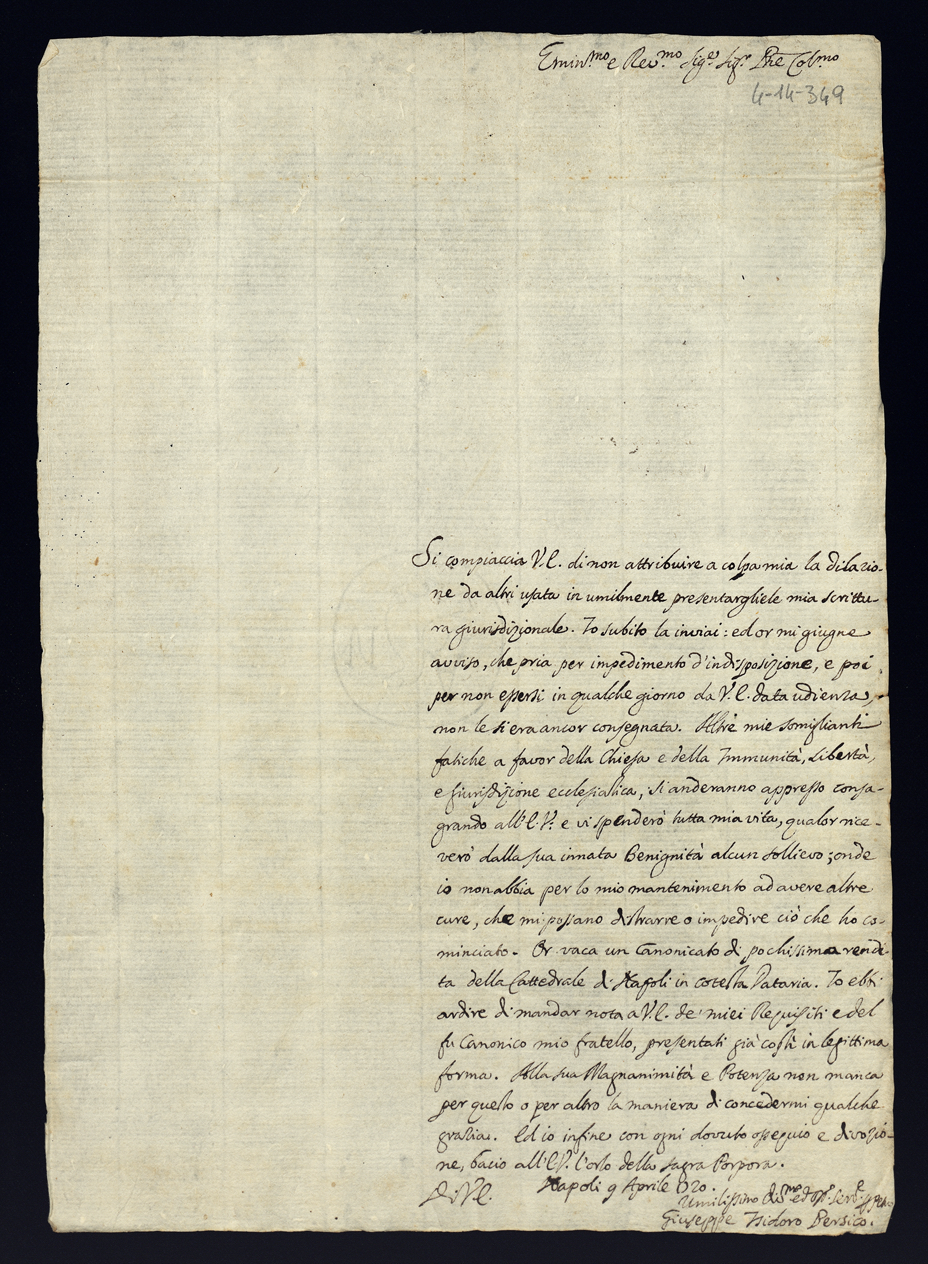 Emin.mo e Rev.mo Sig.e Sig.r P̄ne Col.mo
4-14-349
Si compiaccia V.E. di non attribuire a colpa mia la dilazio-
ne da altri usata in umilmente presentargliele mia scrittu-
ra giurisdizionale. Io subito la inviai: ed or mi giugne
avviso, che pria per impedimento d'indisposizione, e poi
per non essersi in qualche giorno da V.E. data udienza,
non le si era ancor consegnata. Altre mie somiglianti
fatiche a favor della Chiesa e della Immunità, Libertà,
e Giurisdizione ecclesiastica, si anderanno appresso consa-
grando all'E.V. e vi spenderò tutta mia vita, qualor rice-
verò dalla sua innata Benignità alcun sollievo; onde
io non abbia per lo mio mantenimento ad avere altre
cure, che mi possano distrarre o impedire ciò che ho co-
minciato. Or vaca un Canonicato di pochissima rendi-
ta della Cattedrale di Napoli in cotesta Dataria. Io ebbi
ardire di mandar nota a V.E. de' miei Requisiti e del
fu Canonico mio fratello, presentati già costì in legittima
forma. Alla sua Magnanimità e Potenza non manca
per questo o per altro la maniera di concedermi qualche
grazia. Ed io infine con ogni dovuto ossequio e divozio-
ne, bacio all'E.V. l'orlo della sagra Porpora.
Di V.E. Napoli 9 Aprile 1720.
Umilissimo Di.mo ed Obb. Serv.e
Giuseppe Isidoro Persico.